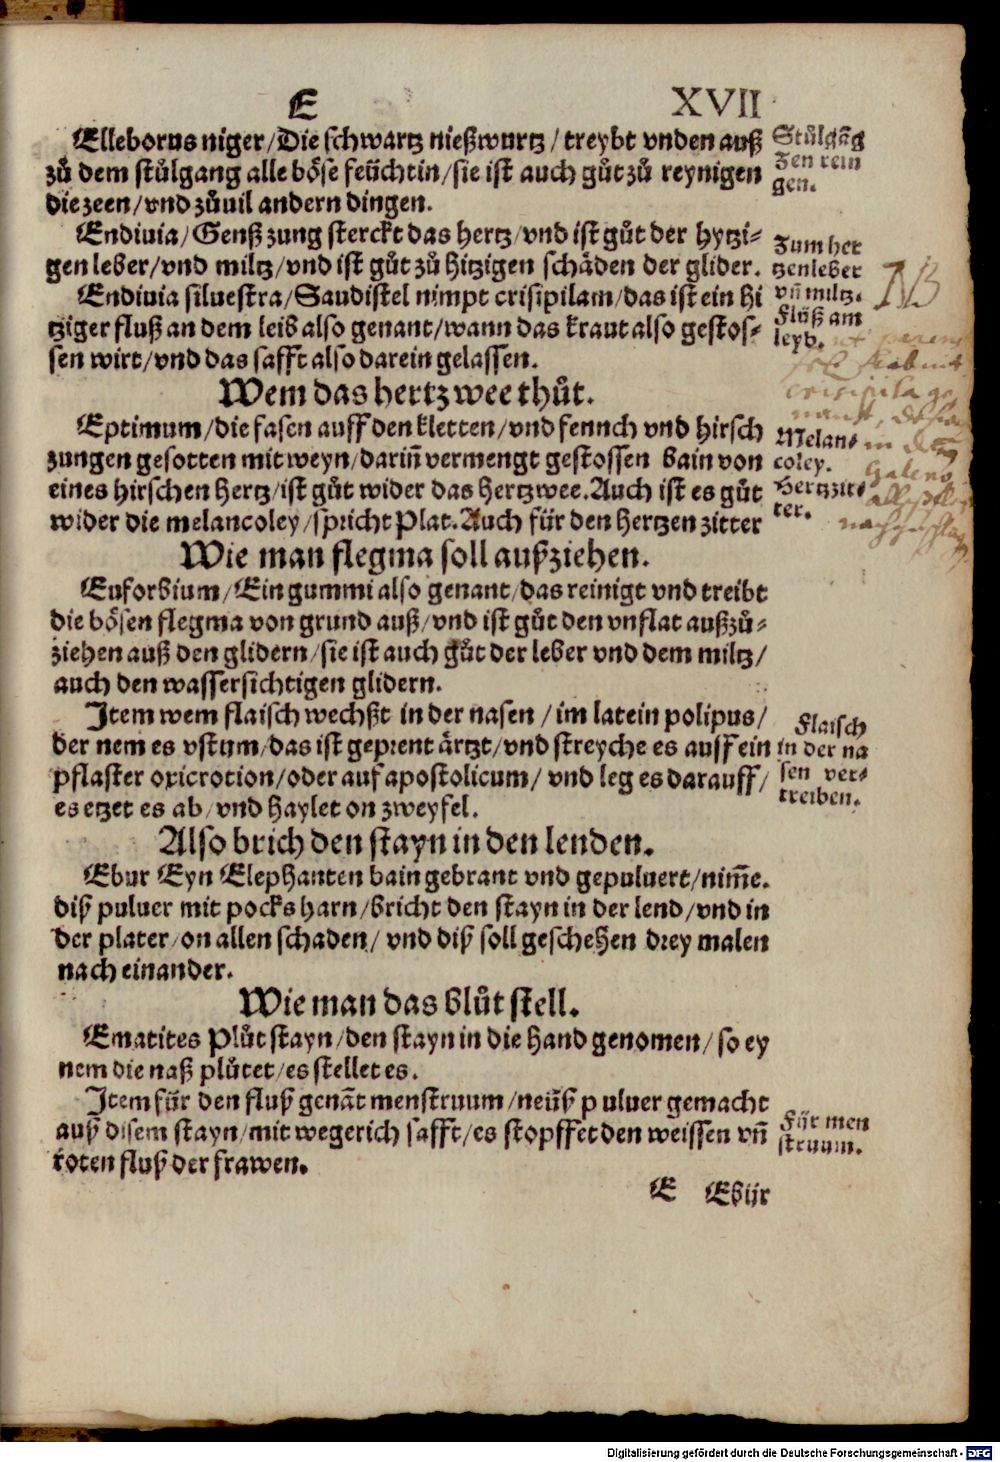 E XVII
Elleborus niger/Die schwartz nießwurtz/treybt vnden auß
zů dem stůlgang alle böse feüchtin/sie ist auch gůt zů reynigen
die zeen/vnd zůuil andern dingen.
Stůlgãg
Zen rein
gen.
Endiuia/Genß zung sterckt das hertz/vnd ist gůt der hytzi-
gen leber/vnd miltz/vnd ist gůt zů hitzigen schäden der glider.
Zum her
tzen leber
vñ miltz.
NB
Endiuia siluestra/Saudistel nimpt crisipilam/das ist ein hi
tziger fluß an dem leib also genant/wann das kraut also gestos-
sen wirt/vnd das safft also darein gelassen.
Flüß am
leyb.
Wem das hertz wee thůt.
Eptimum/die fasen auff den kletten/vnd fennch vnd hirsch
zungen gesotten mit weyn/dariñ vermengt gestossen bain von
eines hirschen hertz/ist gůt wider das hertzwee. Auch ist es gůt
wider die melancoley/spricht Plat. Auch für den hertzen zitter
Melan-
coley.
Hertzzit-
ter.
Galeno
Wie man flegma soll außziehen.
Euforbium/Ein gummi also genant/das reinigt vnd treibt
die bösen flegma von grund auß/vnd ist gůt den vnflat außzů-
ziehen auß den glidern/sie ist auch gůt der leber vnd dem miltz/
auch den wassersichtigen glidern.
Item wem flaisch wechßt in der nasen/im latein polipus/
der nem es vstum/das ist geprent ärtzt/vnd streyche es auff ein
pflaster oxicrotion/oder auf apostolicum/vnd leg es darauff/
es etzet es ab/vnd haylet on zweyfel.
Flaisch
in der na
sen ver-
treiben.
Also brich den stayn in den lenden.
Ebur Eyn Elephanten bain gebrant vnd gepuluert/nim̃e.
diß puluer mit pocks harn/bricht den stayn in der lend/vnd in
der plater/on allen schaden/vnd diß soll geschehen drey malen
nach einander.
Wie man das blůt stell.
Ematites Plůtstayn/den stayn in die hand genomen/so ey
nem die naß plůtet/es stellet es.
Item für den fluß genãt menstruum/neüß puluer gemacht
auß disem stayn/mit wegerich safft/es stopffet den weissen vñ
roten fluß der frawen.
Für men
struum.
E Ebijr
Digitalisierung gefördert durch die Deutsche Forschungsgemeinschaft - DFG